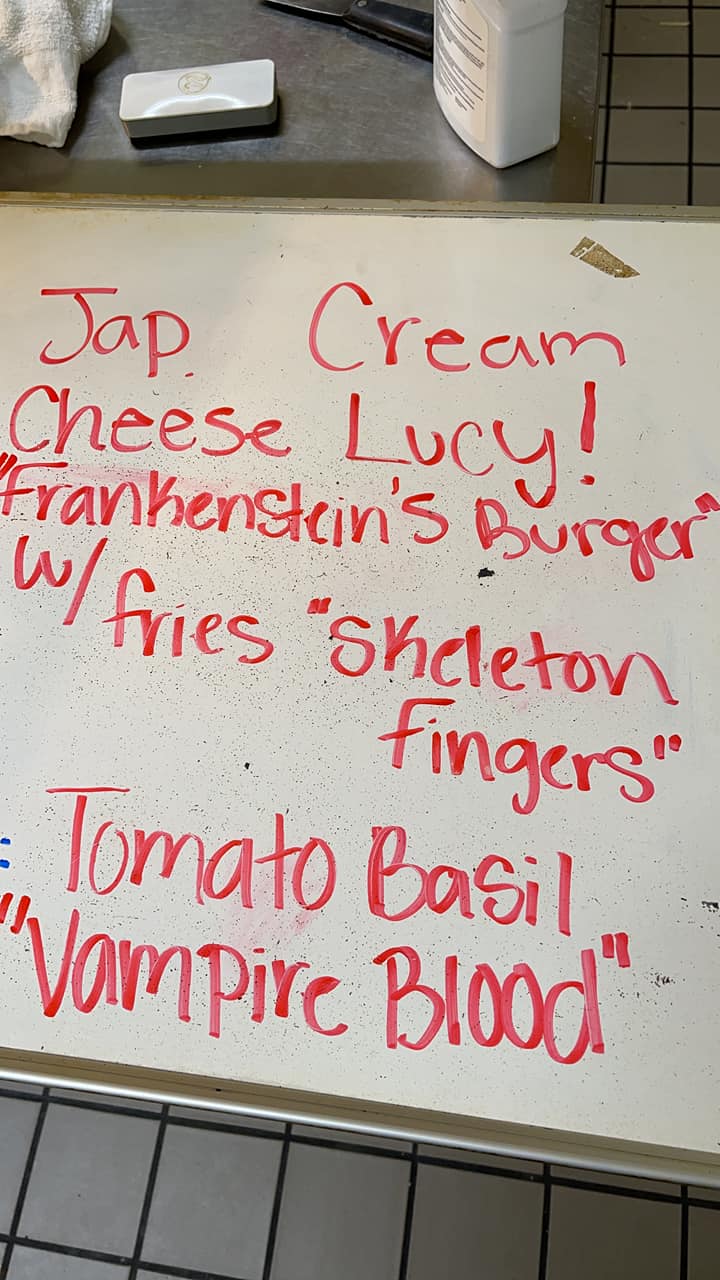 Jap. Cream
Cheese Lucy!
"Frankenstein's Burger"
W/ fries "Skeleton
Fingers"
: Tomato Basil
"Vampire Blood"